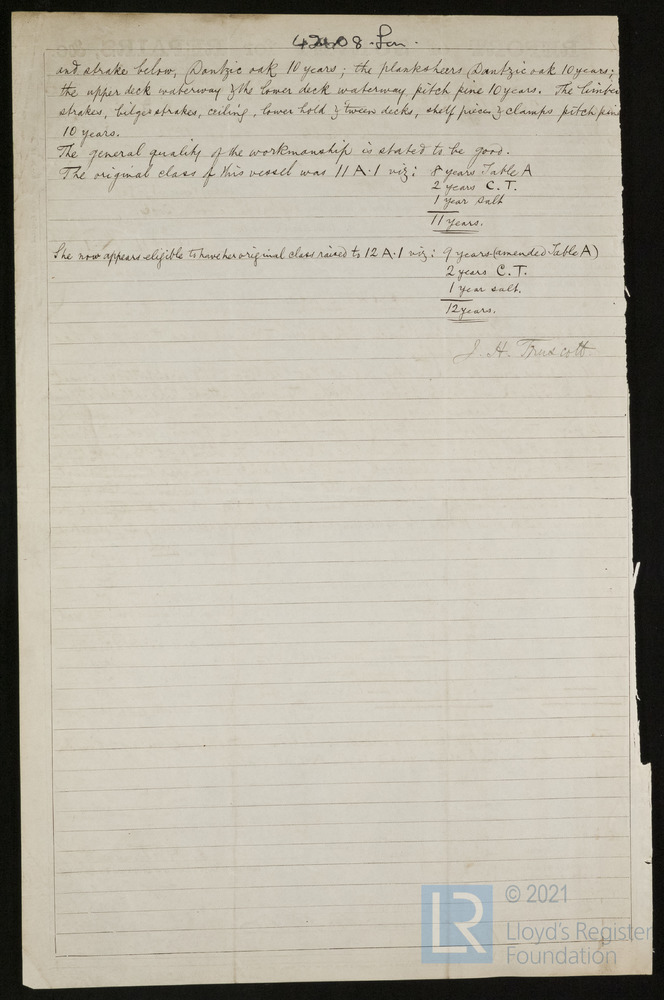 08. Lon.
and strake below, Dantzic oak 10 years; the planksheers Dantzic oak 10 years;
the upper deck waterway & the lower deck waterway pitch pine 10 years. The limber
strakes, bilge strakes, ceiling, lower hold & 'tween decks, shelf pieces & clamps pitch pine
10 years.
The general quality of the workmanship is stated to be good.
The original class of this vessel was 11 A.1 viz: 8 years Table A
2 years C.T.
1 year salt
11 years.
She now appears eligible to have her original class raised to 12 A.1 viz: 9 years (amended Table A)
2 years C.T.
1 year salt.
12 years.
J. H. Truscott
LR
© 2021
Lloyd's Register
Foundation